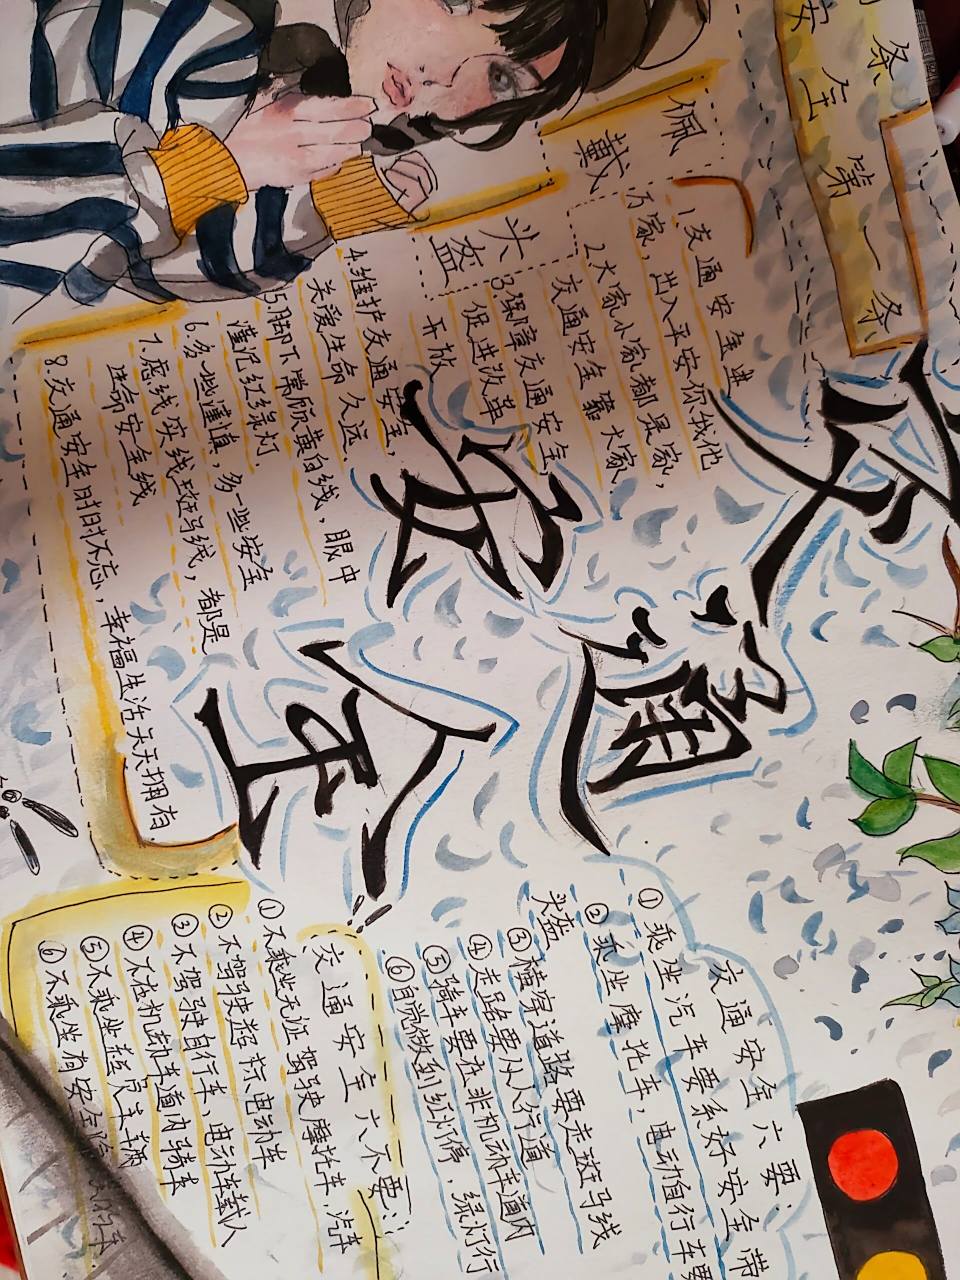 条
安全第一条
交通安全
佩戴
头盔
1.交通安全进
万家，出入平安你我他
2.大家小家都是家，
交通安全靠大家.
3.保障交通安全，
促进改革
开放
4.维护交通安全，
关爱生命久远.
5.脚下常顾黄白线，眼中
谨记红绿灯.
6.多一些谨慎，多一些安全
7.虚线实线斑马线，都是
生命安全线
8.交通安全时时不忘，幸福生活天天拥有.
交通安全六要：
①乘坐汽车要系好安全带
②乘坐摩托车，电动自行车要
头盔
③横穿道路要走斑马线
④走路要从人行道
⑤骑车要在非机动车道内
⑥自觉做到红灯停，绿灯行
交通安全六不要：
①不乘坐无证驾驶摩托车、汽车
②不驾驶超标电动车
③不驾驶自行车、电动车载人
④不在机动车道内骑车
⑤不乘坐超员车辆
⑥不乘坐有安全隐